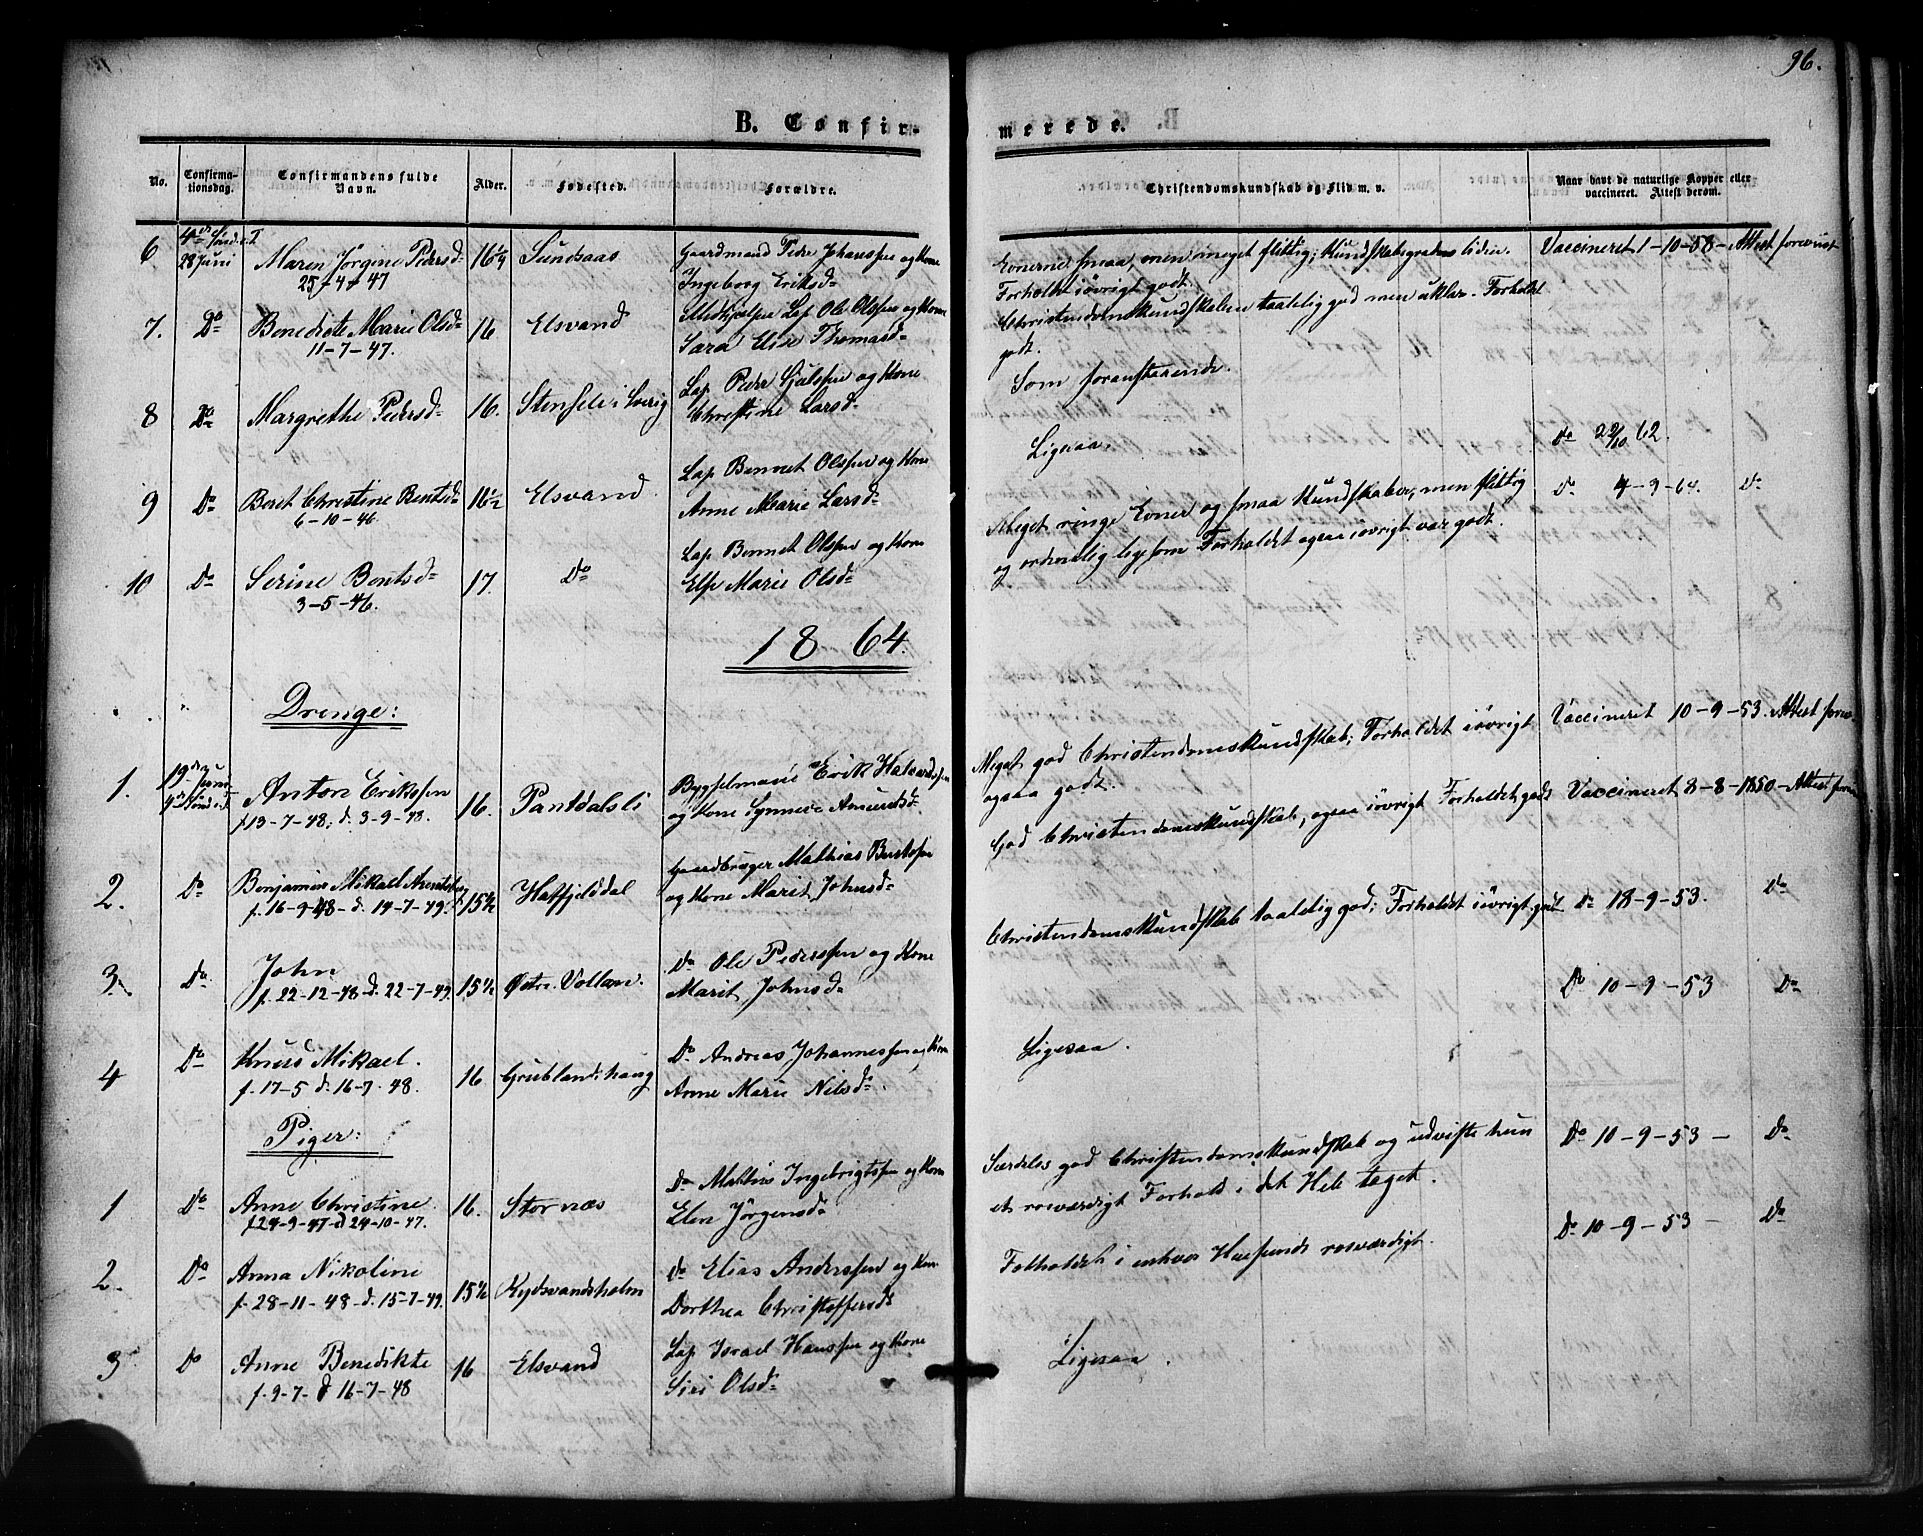 96.
B. Confir-
merede.
No.
Confirma-
tionsdag.
Confirmandens fulde
Navn.
Alder.
Fødested.
Forældre.
Christendomskundskab og Flid m. v.
Naar havt de naturlige Kopper eller
vaccineret. Attest derom.
6 28 Juni Maren Jørgine Pedersd- 16 1/4 Sundsaas Gaardmand Peder Johanssen og Kone
25-4-47 Ingeborg Eriksd-
Evnerne smaa, men meget flittig; Kundskabsgraden liden. Vaccineret 1-10-58- Attest forevist
Forholdet iøvrigt godt.
7. Do Benedicte Marie Olsd- 16 Elsvand Lap Ole Olssen og Kone
11-7-47. Sara Elise Thomasd-
Christendomskundskaben taalelig god men uklar. Forholdet
godt.
8 Do Margrethe Pedersd- 16. Stensele i Sverig Lap Peder Sjulssen og Kone
Christine Larsd-
Som foranstaaende.
9 Do Beret Christine Bentsd- 16 1/2 Elsvand Lap Bennet Olssen og Kone
6-10-46. Anne Marie Larsd-
Ligesaa. Do 22/10 62.
10 Do Serine Bentsd- 17. Do Lap Bennet Olssen og Kone
3-5-46. Else Marie Olsd-
Meget ringe Evner og smaa Kundskaber, men flittig Do 4-9-64. Do
og ordentlig ligesom Forholdet ogsaa iøvrigt var godt.
1864.
Drenge:
1. 19de Juni Anton Erikssen 16. Pantdalsli Bygselmand Erik Halvardssen
f. 13-7-48; d. 3-9-48. og Kone Synnev Amundsd-
Meget god Christendomskundskab; Forholdet iøvrigt Vaccineret 10-9-53. Attest forev.
ogsaa godt.
2. Do Benjamin Mikael 15 1/2 Hatfjelddal Gaardbruger Mathias Bentssen
f. 16-9-48- d. 14-7-49. og Kone Marit Johnsd-
God Christendomskundskab, ogsaa iøvrigt Forholdet godt Vaccineret 8-8-1850- Attest forev
3. Do John 15 1/2 Østre Vollan. Do Ole Pederssen og Kone
f. 22-12-48- d. 22-7-49. Marit Johnsd-
Christendomskundskab taalelig god; Forholdet iøvrigt godt Do 18-9-53. Do
4 Do Knut Mikael. 16 Grublandshaug Do Andreas Johannessen og Kone
f. 17-5 d. 16-7-48. Anne Marie Nilsd-
Ligesaa. Do 10-9-53 Do
Piger:
1 Do Anne Christine. 16. Stornæs Do Mathis Ingebrigtssen og Kone
f. 24-9-47- d 24-10-47. Elen Jørgensd-
Særdeles god Christendomskundskab og udviste hun Do 10-9-53- Do
et rosværdigt Forhold i det Hele taget.
2. Do Anna Nikoline 15 1/2 Kydsvandsholm Do Elias Anderssen og Kone
f. 28-11-48- d. 15-7-49. Dorthea Christoffersd-
Forholdet i enhver Henseende rosværdigt. Do 10-9-53- Do
3 Do Anne Benedikte 16 Elsvand Lap Israel Hanssen og Kone
f. 9-7- d 16-7-48 Siri Olsd-
Ligesaa.